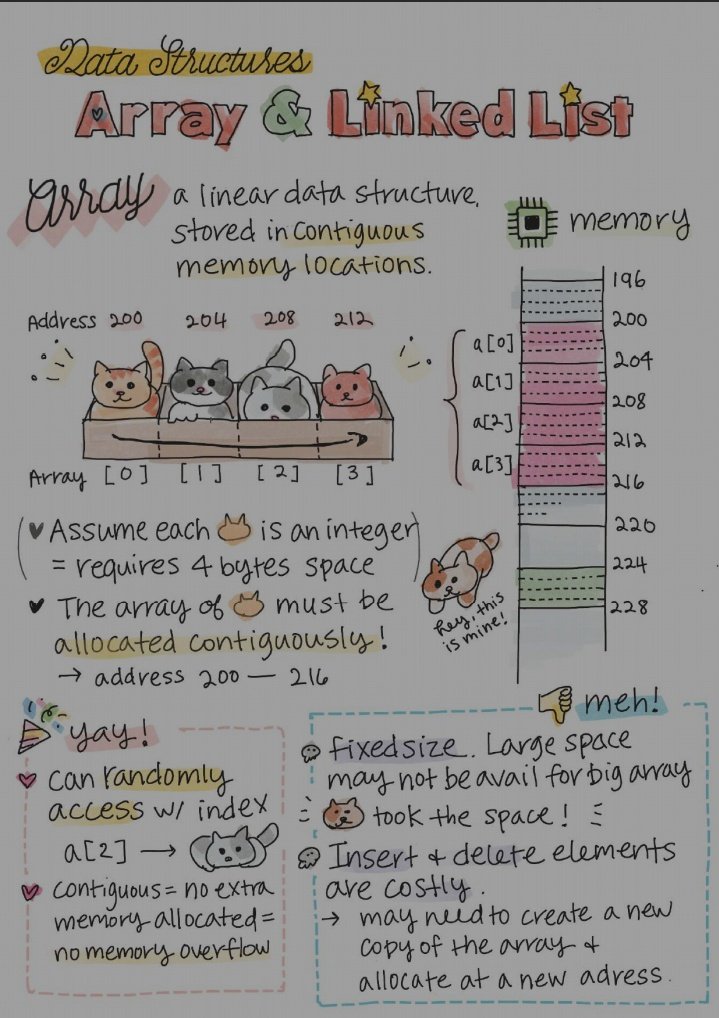 Data Structures
Array & Linked List
array a linear data structure,
stored in contiguous
memory locations.
memory
Address 200 204 208 212
Array [0] [1] [2] [3]
196
200
a[0]
204
a[1]
208
a[2]
212
a[3]
216
220
224
228
Assume each is an integer
= requires 4 bytes space
The array of must be
allocated contiguously!
→ address 200 — 216
hey, this
is mine!
yay!
can randomly
access w/ index
a[2] →
contiguous = no extra
memory allocated =
no memory overflow
meh!
fixed size. Large space
may not be avail for big array
took the space!
Insert & delete elements
are costly.
→ may need to create a new
copy of the array &
allocate at a new adress.